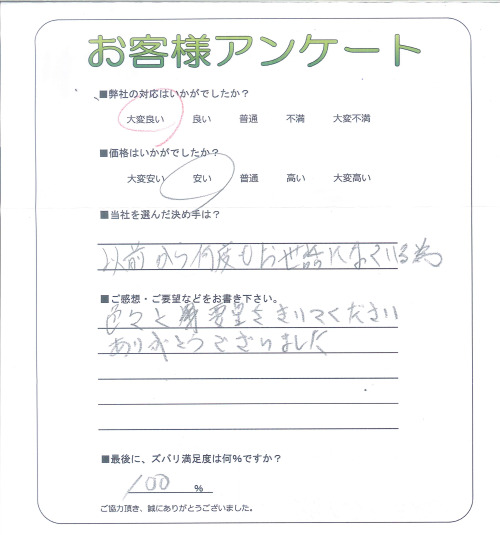 お客様アンケート
■弊社の対応はいかがでしたか?
大変良い 良い 普通 不満 大変不満
■価格はいかがでしたか?
大変安い 安い 普通 高い 大変高い
■当社を選んだ決め手は?
以前から何度もお世話になっている為
■ご感想・ご要望などをお書き下さい。
色々と 要望をきいてください
ありがとうございました
■最後に、ズバリ満足度は何%ですか?
100 %
ご協力頂き、誠にありがとうございました。